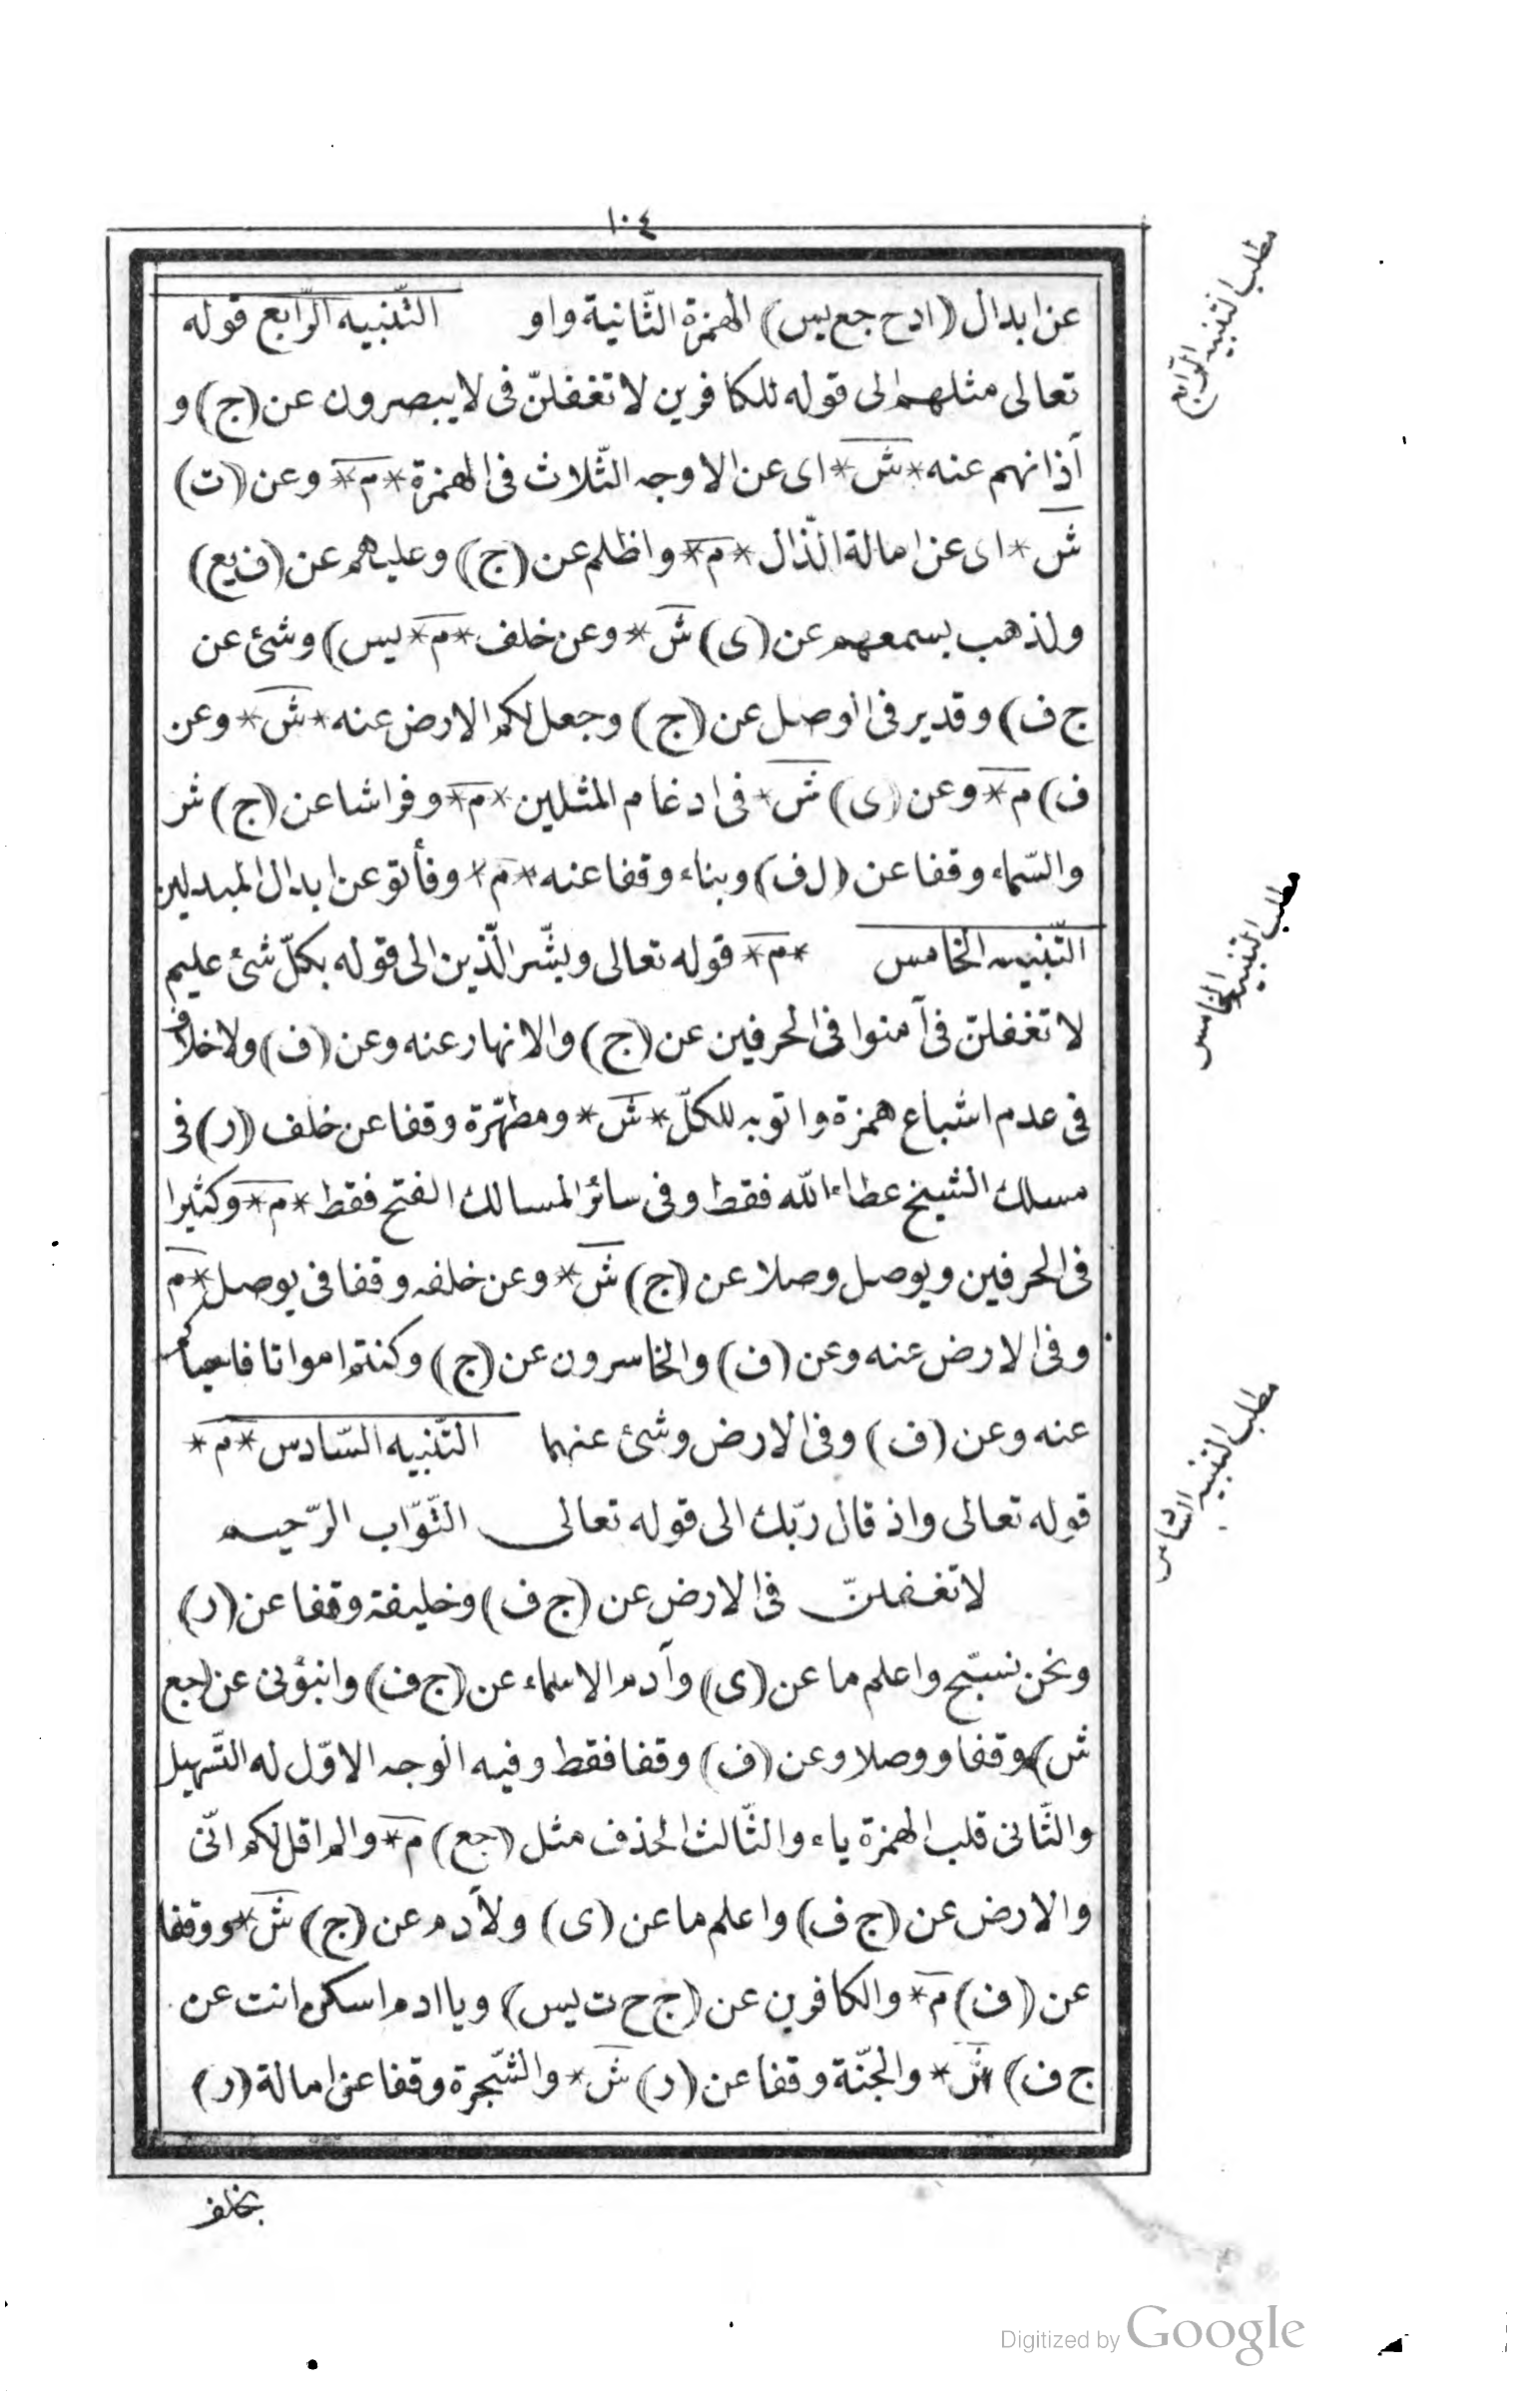 ١٠٤
عن ابدال (ادح جع يس) الهمزة الثّانية واو التّنبيه الرّابع قوله
تعالى مثلهم الى قوله للكافرين لا تغفلنّ فى لا يبصرون عن (ج) و
آذانهم عنه * ش * اى عن الاوجه الثّلاث فى الهمزة * م * وعن (ت)
ش * اى عن امالة الذّال * م * واظلم عن (ج) وعليهم عن (ف يع)
ولذهب بسمعهم عن (ى) ش * وعن خلف * م * يس) وشئ عن
ج ف) وقدير فى الوصل عن (ج) وجعل لكم الارض عنه * ش * وعن
ف) م * وعن (ى) ش * فى ادغام المثلين * م * وفراشا عن (ج) ش
والسّماء وقفا عن (ل ف) وبناء وقفا عنه * م * وفأتو عن ابدال المبدلين
التّنبيه الخامس * م * قوله تعالى وبشّر الّذين الى قوله بكلّ شئ عليم
لا تغفلنّ فى آمنوا فى الحرفين عن (ج) والانهار عنه وعن (ف) ولا خلاف
فى عدم اشباع همزة واتوبه للكلّ * ش * ومطهّرة وقفا عن خلف (ر) فى
مسلك الشيخ عطاء الله فقط وفى سائر المسالك الفتح فقط * م * وكثيرا
فى الحرفين ويوصل وصلا عن (ج) ش * وعن خلفه وقفا فى يوصل * م
وفى الارض عنه وعن (ف) والخاسرون عن (ج) وكنتم امواتا فاحياكم
عنه وعن (ف) وفى الارض وشئ عنهما التّنبيه السّادس * م *
قوله تعالى واذ قال ربّك الى قوله تعالى التّوّاب الرّحيم
لا تغفلنّ فى الارض عن (ج ف) وخليفة وقفا عن (ر)
ونحن نسبّح واعلم ما عن (ى) وآدم الاسماء عن (ج ف) وانبؤنى عن (جع
ش) وقفا ووصلا وعن (ف) وقفا فقط وفيه الوجه الاوّل له التّسهيل
والثّانى قلب الهمزة ياء والثّالث الحذف مثل (جع) م * والم اقل لكم انّى
والارض عن (ج ف) واعلم ما عن (ى) ولآدم عن (ج) ش * ووقفا
عن (ف) م * والكافرين عن (ج ح ت يس) ويا ادم اسكن انت عن
ج ف) ش * والجنّة وقفا عن (ر) ش * والشّجرة وقفا عن امالة (ر)
بخلف
مطلب التنبيه الرّابع
مطلب التنبيه الخامس
مطلب التنبيه السّادس
Digitized by Google